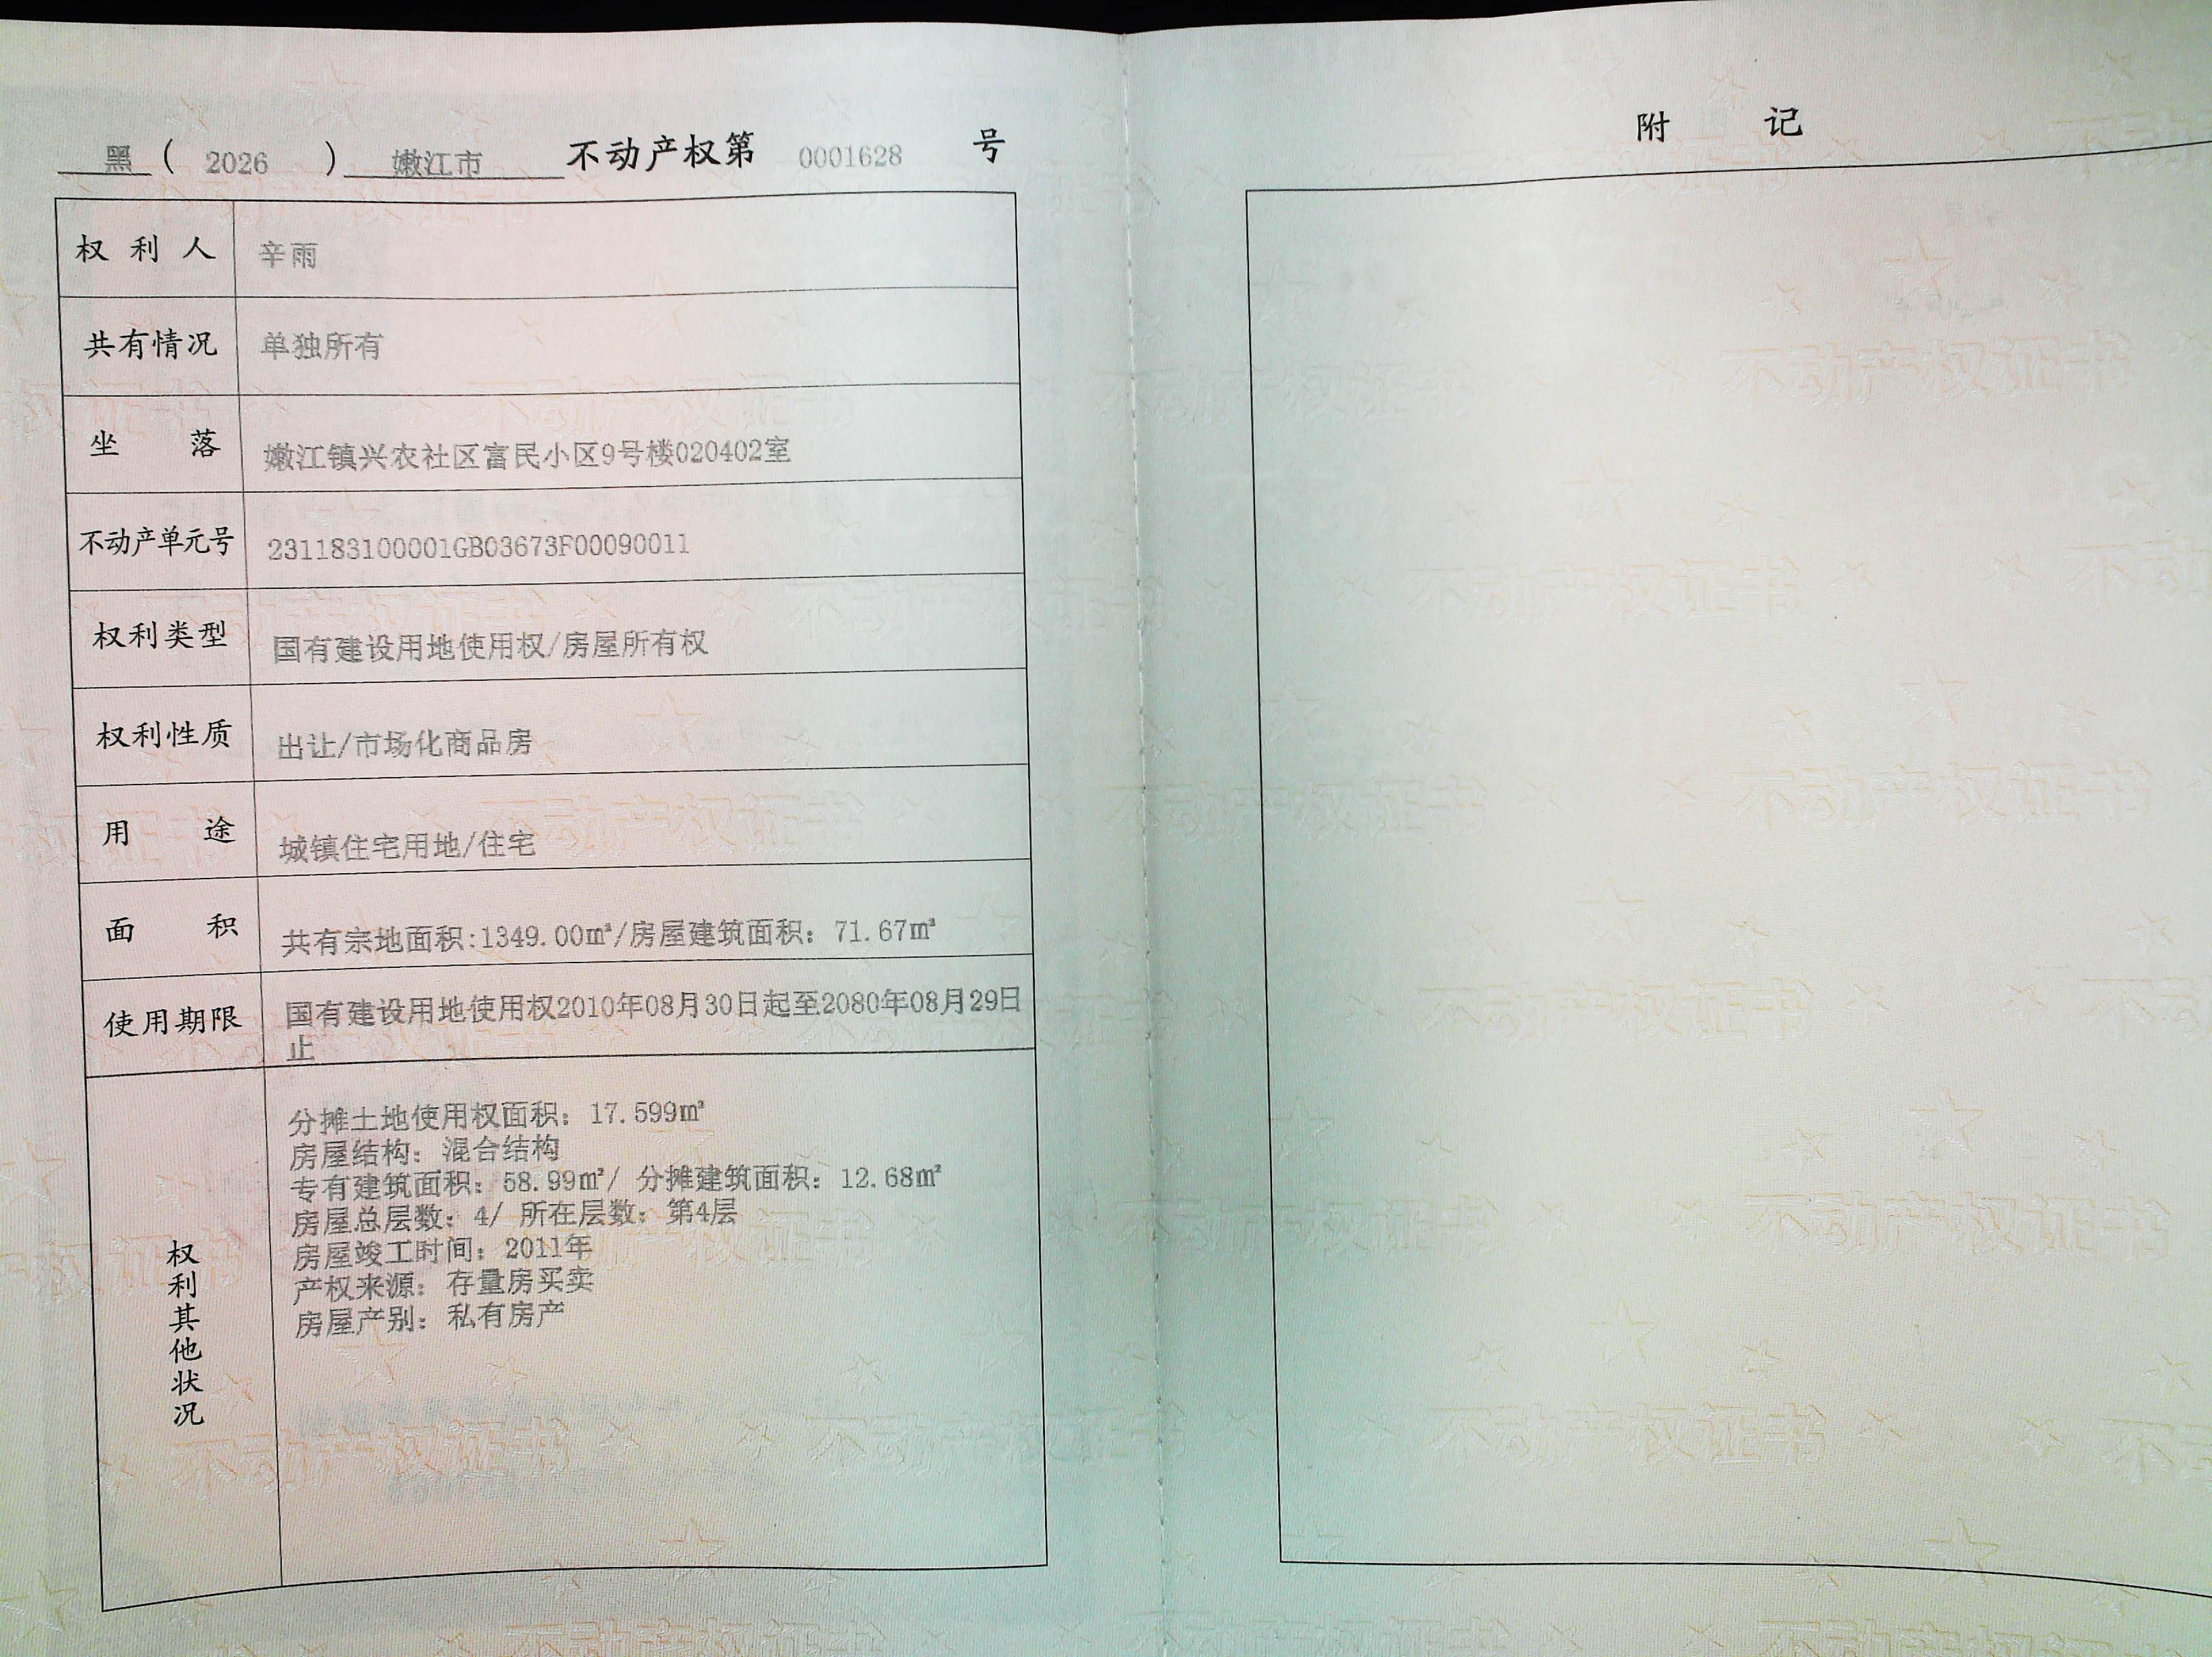 黑 ( 2026 ) 嫩江市 不动产权第 0001628 号
权利人 辛雨
共有情况 单独所有
坐落 嫩江镇兴农社区富民小区9号楼020402室
不动产单元号 231183100001GB03673F00090011
权利类型 国有建设用地使用权/房屋所有权
权利性质 出让/市场化商品房
用途 城镇住宅用地/住宅
面积 共有宗地面积:1349.00㎡/房屋建筑面积：71.67㎡
使用期限 国有建设用地使用权2010年08月30日起至2080年08月29日
止
权利其他状况
分摊土地使用权面积：17.599㎡
房屋结构：混合结构
专有建筑面积：58.99㎡/ 分摊建筑面积：12.68㎡
房屋总层数：4/ 所在层数：第4层
房屋竣工时间：2011年
产权来源：存量房买卖
房屋产别：私有房产
附记